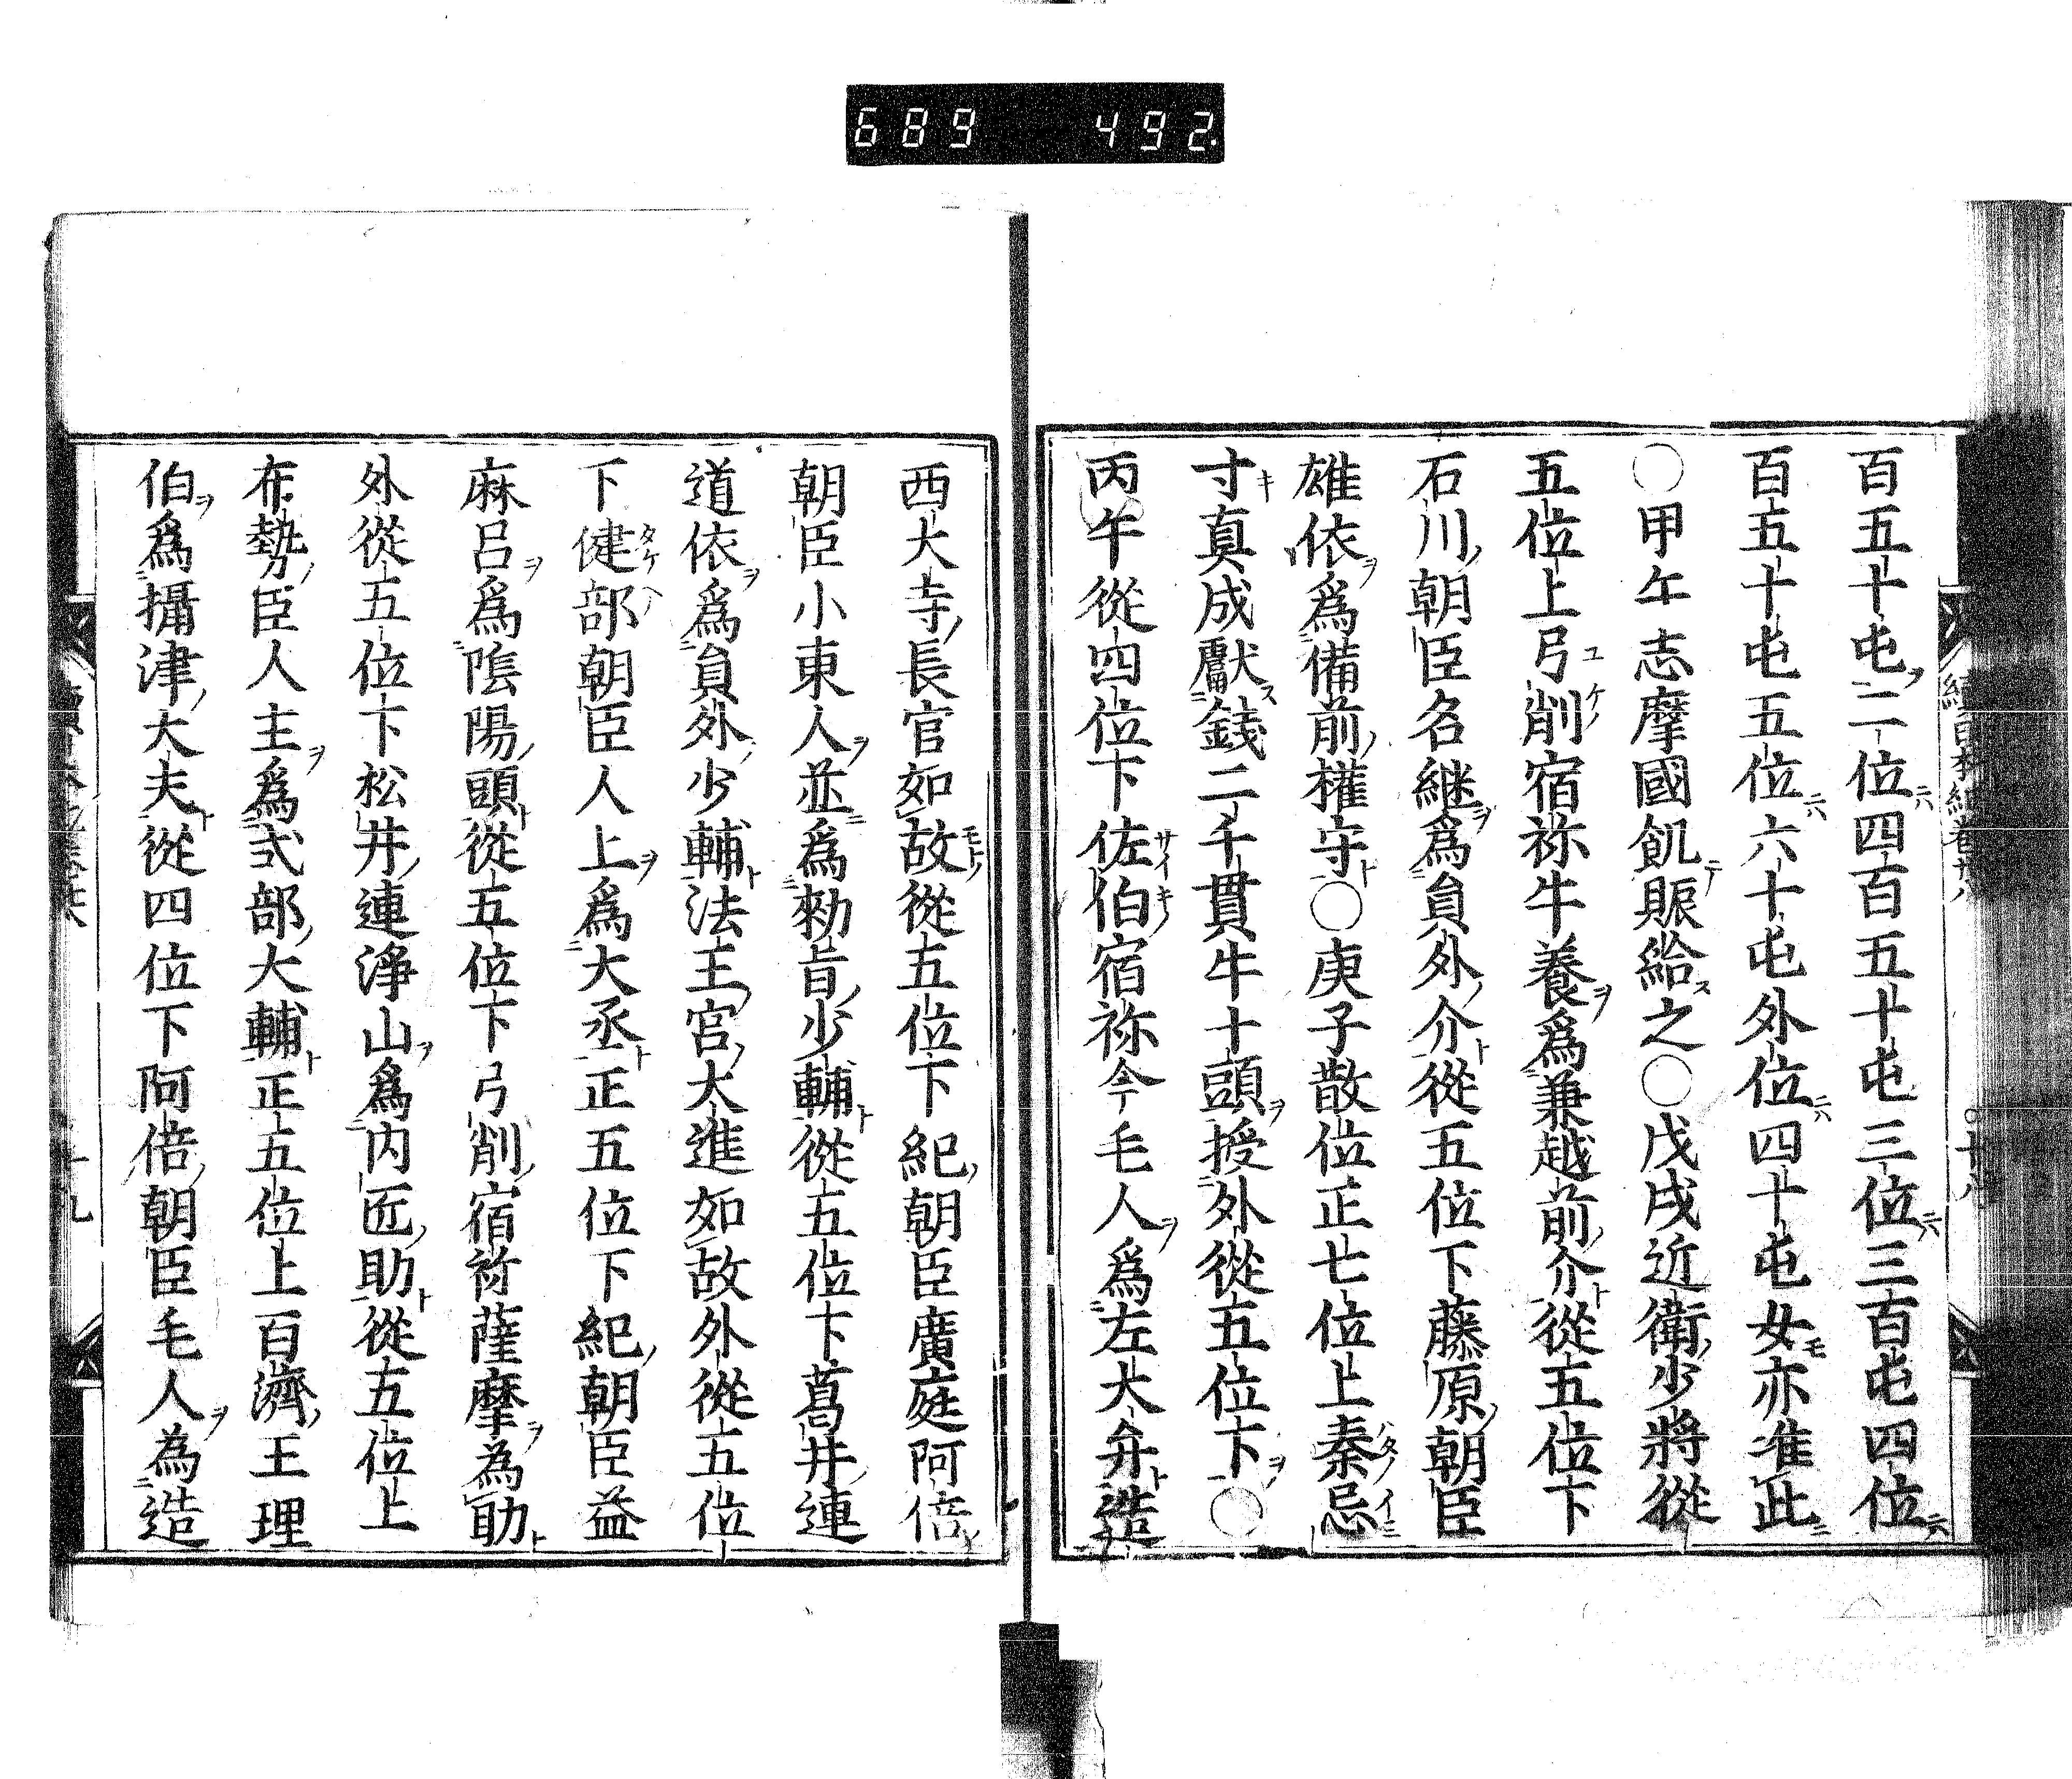 689 492.
百五十屯二位四百五十屯三位三百屯四位
百五十屯五位六十屯外位四十屯女亦准此
○甲午志摩國飢賑給之○戊戌近衛少將從
五位上弓削宿祢牛養爲兼越前介從五位下
石川朝臣名継爲員外介從五位下藤原朝臣
雄依爲備前權守○庚子散位正七位上秦忌
寸真成獻銭二千貫牛十頭授外從五位下○
丙午從四位下佐伯宿祢今毛人爲左大弁造
西大寺長官如故從五位下紀朝臣廣庭阿倍
朝臣小東人並爲勅旨少輔從五位下葛井連
道依爲員外少輔法王宮大進如故外從五位
下健部朝臣人上爲大丞正五位下紀朝臣益
麻呂爲陰陽頭從五位下弓削宿祢薩摩為助
外從五位下松井連淨山爲内匠助從五位上
布勢臣人主爲式部大輔正五位上百濟王理
伯爲攝津大夫從四位下阿倍朝臣毛人為造